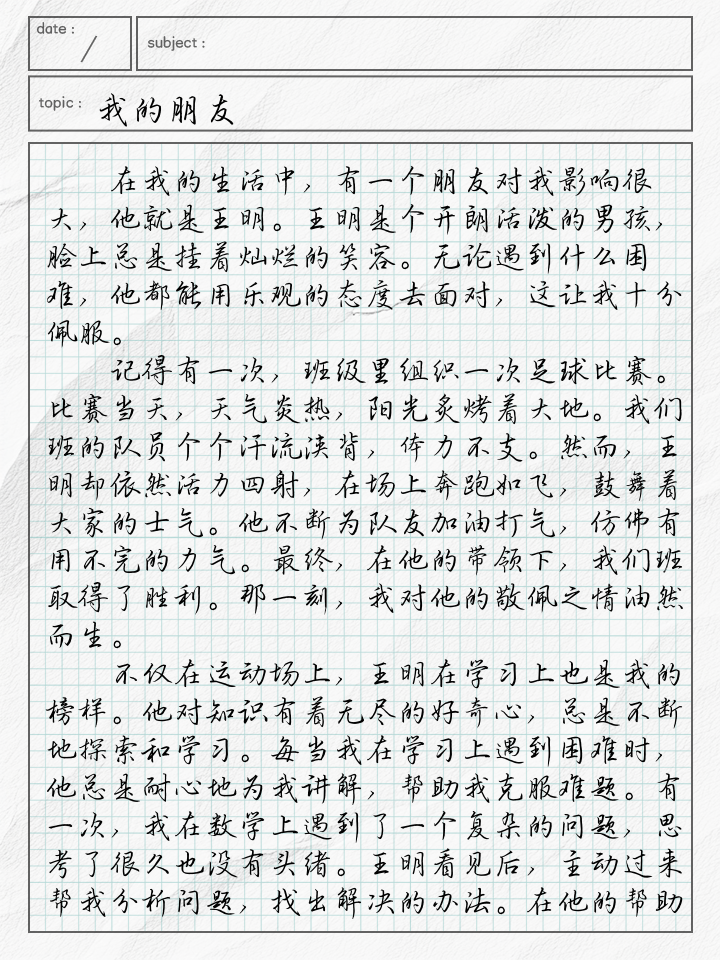 date :
/
subject :
topic : 我的朋友
在我的生活中，有一个朋友对我影响很
大，他就是王明。王明是个开朗活泼的男孩，
脸上总是挂着灿烂的笑容。无论遇到什么困
难，他都能用乐观的态度去面对，这让我十分
佩服。
记得有一次，班级里组织一次足球比赛。
比赛当天，天气炎热，阳光炙烤着大地。我们
班的队员个个汗流浃背，体力不支。然而，王
明却依然活力四射，在场上奔跑如飞，鼓舞着
大家的士气。他不断为队友加油打气，仿佛有
用不完的力气。最终，在他的带领下，我们班
取得了胜利。那一刻，我对他的敬佩之情油然
而生。
不仅在运动场上，王明在学习上也是我的
榜样。他对知识有着无尽的好奇心，总是不断
地探索和学习。每当我在学习上遇到困难时，
他总是耐心地为我讲解，帮助我克服难题。有
一次，我在数学上遇到了一个复杂的问题，思
考了很久也没有头绪。王明看见后，主动过来
帮我分析问题，找出解决的办法。在他的帮助